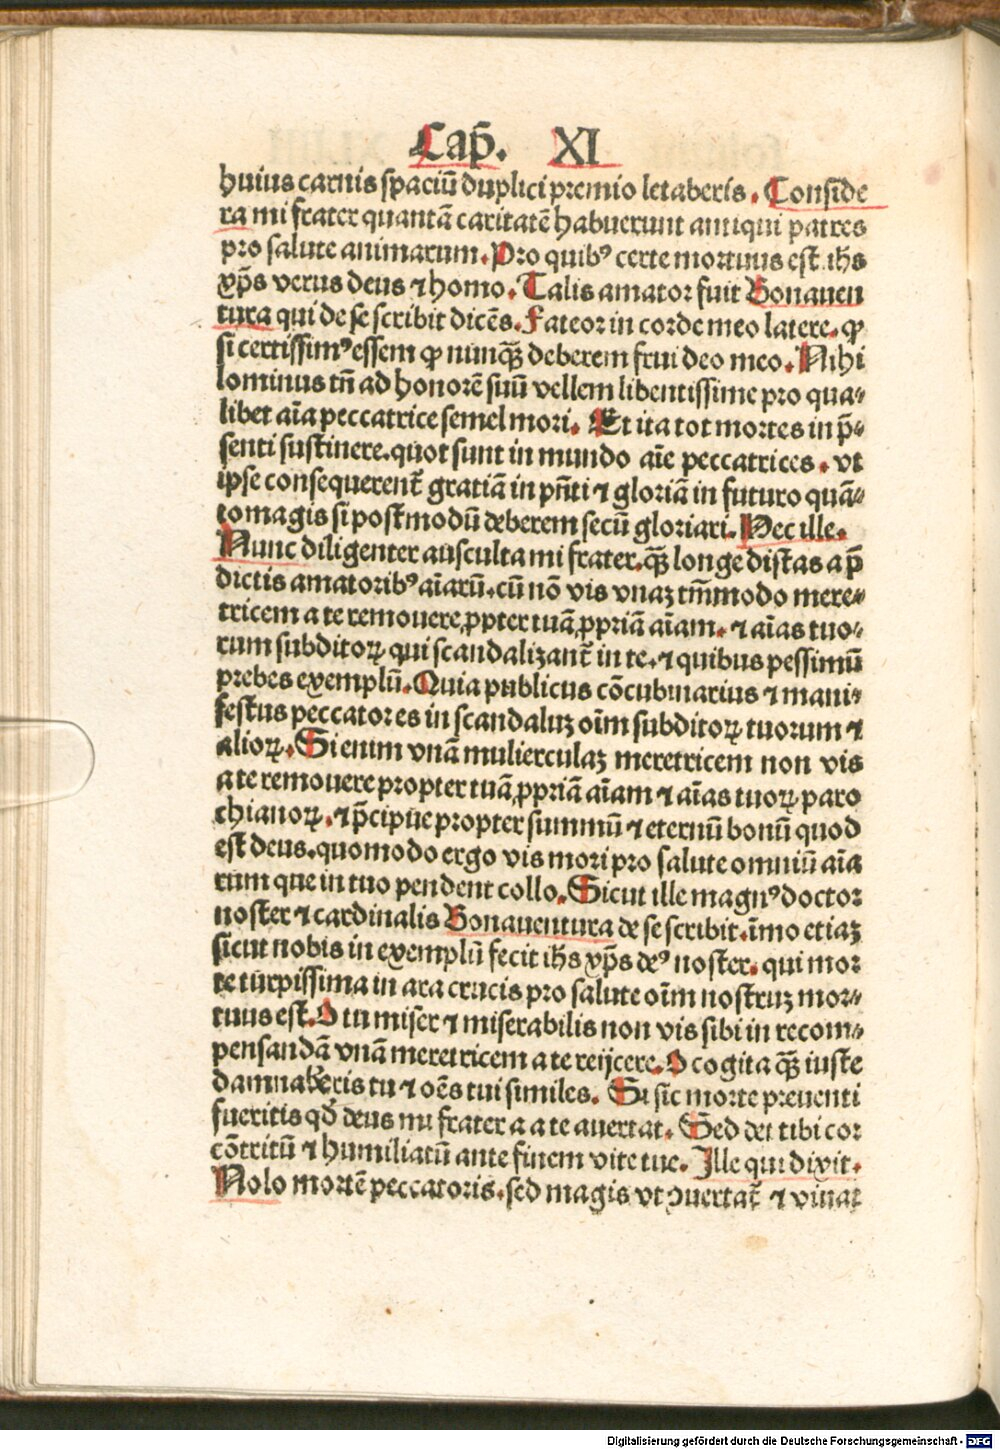 Cap̄. XI
huius carnis spaciū duplici premio letaberis. Conside
ra mi frater quantā caritatē habuerunt antiqui patres
pro salute animarum. Pro quibꝰ certe mortuus est ihs
xp̄s verus deus ⁊ homo. Talis amator fuit Bonauen
tura qui de se scribit dicēs. Fateor in corde meo latere. ꝙ
si certissimꝰ essem ꝙ nunqꝫ̄ deberem frui deo meo. Nihi
lominus tn̄ ad honorē suū vellem libentissime pro qua⸗
libet aīa peccatrice semel mori. Et ita tot mortes in p̄⸗
senti sustinere. quot sunt in mundo aīe peccatrices. vt
ipse consequerent̄ gratiā in pn̄ti ⁊ gloriā in futuro quā⸗
to magis si postmodū deberem secū gloriari. Hec ille.
Nunc diligenter ausculta mi frater. qꝫ̄ longe distas a p̄
dictis amatoribꝰ aīarū. cū nō vis vnaꝫ tm̄modo mere⸗
tricem a te remouere ꝓpter tuā ꝓpriā aīam. ⁊ aīas tuo⸗
rum subditoꝝ qui scandalizant̄ in te. ⁊ quibus pessimū
prebes exemplū. Quia publicus cōcubinarius ⁊ mani⸗
festus peccator es in scandaluꝫ oīm subditoꝝ tuorum ⁊
alioꝝ. Si enim vnā mulierculaꝫ meretricem non vis
a te remouere propter tuā ꝓpriā aīam ⁊ aīas tuoꝝ paro
chianoꝝ. ⁊ p̄cipue propter summū ⁊ eternū bonū quod
est deus. quomodo ergo vis mori pro salute omniū aīa
rum que in tuo pendent collo. Sicut ille magnꝰ doctor
noster ⁊ cardinalis Bonauentura de se scribit. īmo etiaꝫ
sicut nobis in exemplū fecit ihs xp̄s deꝰ noster. qui mor
te turpissima in ara crucis pro salute oīm nostruꝫ mor⸗
tuus est. O tu miser ⁊ miserabilis non vis sibi in recom⸗
pensandā vnā meretricem a te reijcere. O cogita qꝫ̄ iuste
damnaberis tu ⁊ oēs tui similes. Si sic morte preuenti
fueritis qd̄ deus mi frater a a te auertat. Sed det tibi cor
cōtritū ⁊ humiliatū ante finem vite tue. Ille qui dixit.
Nolo mortē peccatoris. sed magis vt ꝯuertat̄ ⁊ viuat
Digitalisierung gefördert durch die Deutsche Forschungsgemeinschaft - DFG